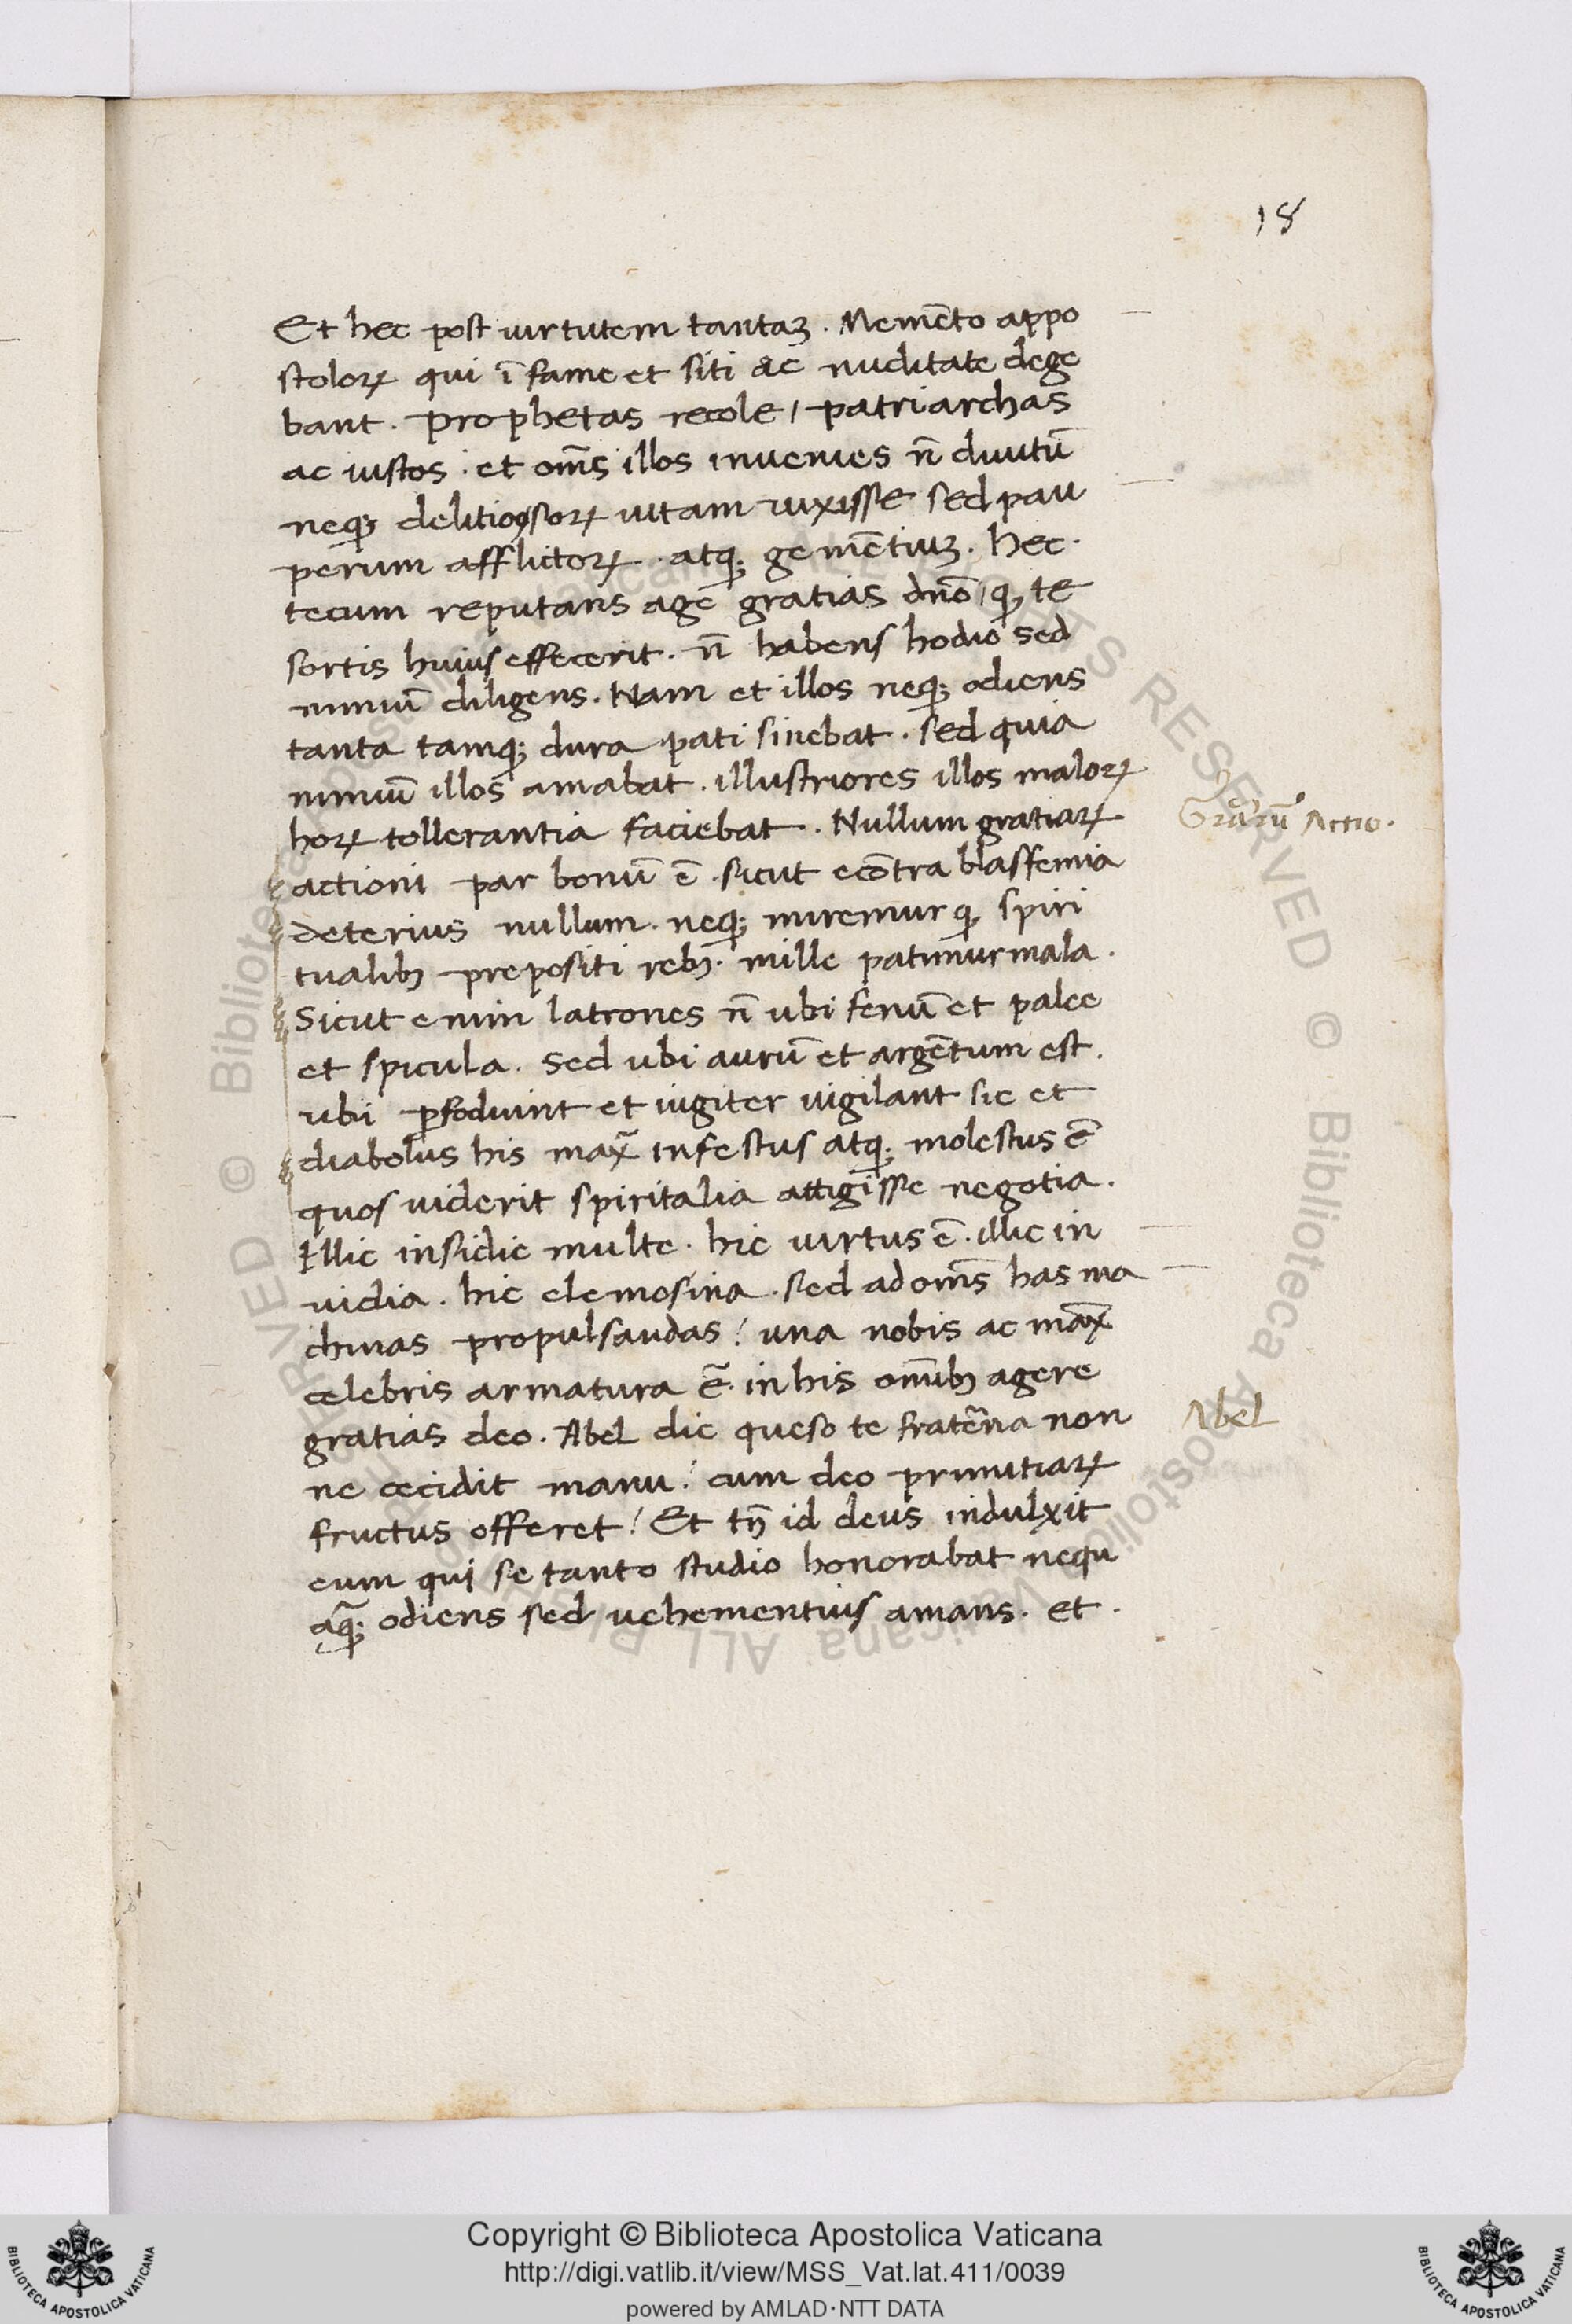 18
Et hec post uirtutem tantaꝫ. Memēto appo
stoloꝝ qui ī fame et siti ac nuditate dege
bant. Prophetas recole / patriarchas
ac iustos. et om̄s illos inuenies n̄ diuitū
neqꝫ delitiososoꝝ uitam uixisse sed pau
perum afflictoꝝ. atqꝫ gemētiuꝫ. hec.
tecum reputans age gratias dn̄o / qꝫ te
sortis huius effecerit. n̄ habens hodio sed
nimiū diligens. Nam et illos neqꝫ odiens
tanta tamqꝫ dura pati sinebat. sed quia
nimiū illos amabat. illustriores illos maloꝝ
hoꝝ tollerantia faciebat. Nullum gratiaꝝ
Gr̄arū Actio.
actioni par bonū ē. sicut ecōtra blasfemia
deterius nullum. neqꝫ miremur qꝫ spiri
tualibꝫ prepositi rebꝫ. mille patimur mala.
Sicut enim latrones n̄ ubi fenū et palee
et spicula. Sed ubi aurū et argētum est.
ubi ꝑfodiuint et iugiter uigilant sic et
diabolus his max̄ infestus atqꝫ molestus ē
quos uiderit spiritalia attigisse negotia.
Illic insidie multe. hic uirtus ē. illic in
uidia. hic elemosina. sed ad om̄s has ma
chinas propulsandas / una nobis ac max̄
celebris armatura ē. in his om̄ibꝫ agere
gratias deo. Abel dic queso te fraterna non
Abel
ne cecidit manu / cum deo primitiaꝝ
fructus offeret / Et tn̄ id deus indulxit
eum qui se tanto studio honorabat nequ
aq̄ꝫ odiens sed uehementius amans. et.
© Biblioteca Apostolica Vaticana ALL RIGHTS RESERVED
Copyright © Biblioteca Apostolica Vaticana
http://digi.vatlib.it/view/MSS_Vat.lat.411/0039
powered by AMLAD·NTT DATA
BIBLIOTECA APOSTOLICA VATICANA
BIBLIOTECA APOSTOLICA VATICANA